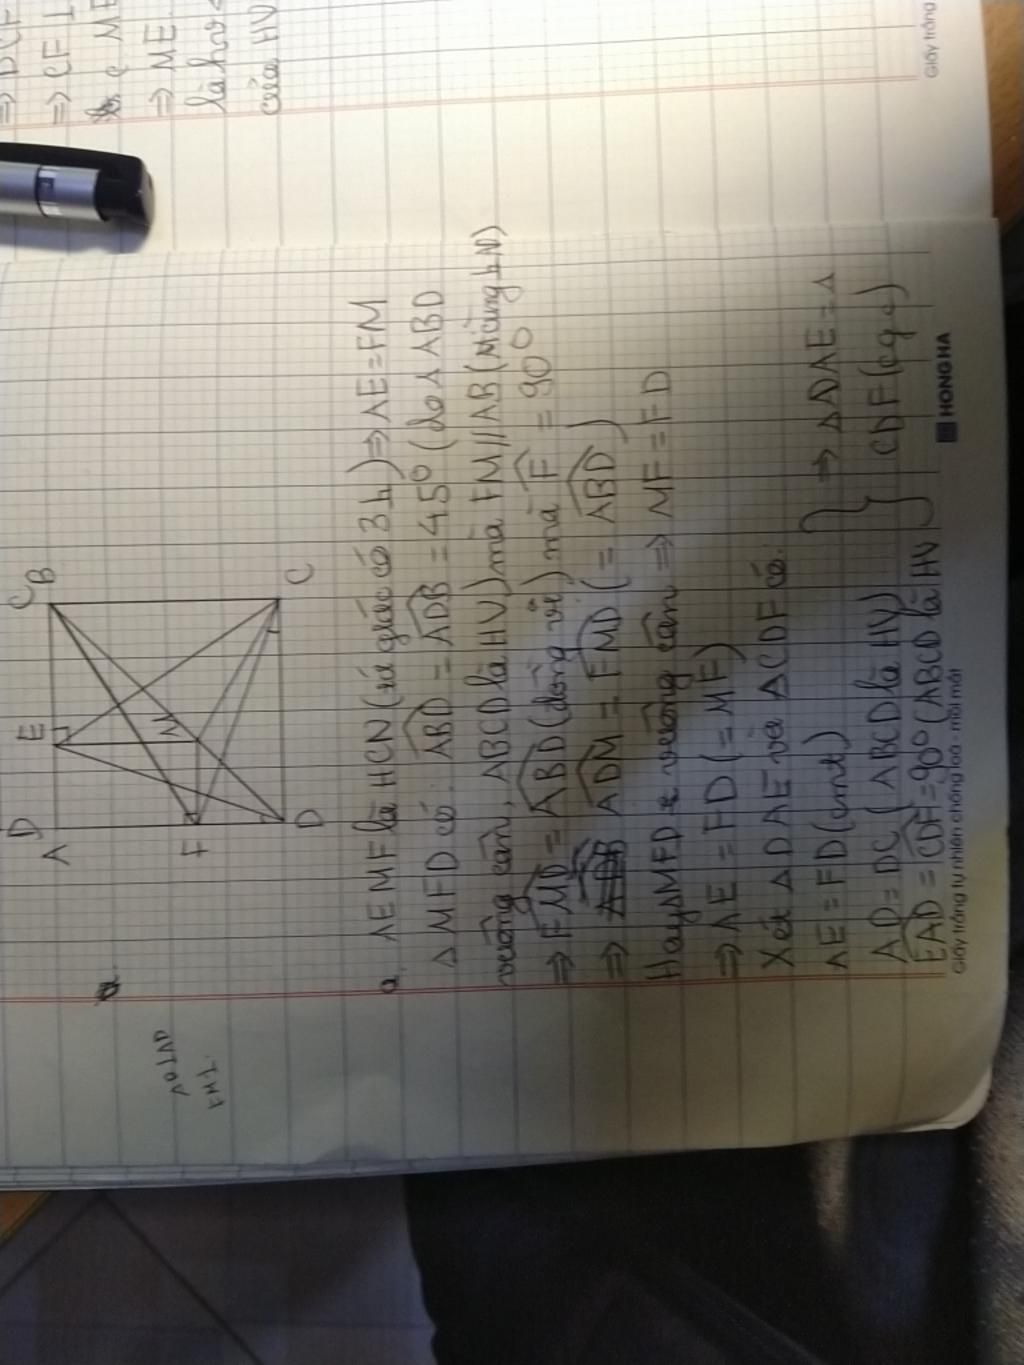 ⇒ DCF
⇒ CF ⊥
C ME
⇒ ME
là hư
của HV
Giấy trắng
D E C
A B
M
F
D C
AEMF là HCN (tứ giác có 3 h) ⇒ AE = FM
a. Δ MFD có: ABD = ADB = 45° (do Δ ABD
vuông cân, ABCD là HV) mà FM // AB (vì cùng ⊥ AD)
⇒ FMD = ABD (đồng vị) mà F = 90°
⇒ ADM = FMD (= ABD)
Hay Δ MFD vuông cân ⇒ MF = FD
⇒ AE = FD (= MF)
Xét Δ DAE và Δ CDF có:
AE = FD (cmt)
AD = DC (ABCD là HV)
EAD = CDF = 90° (ABCD là HV
} ⇒ Δ DAE = Δ
CDF (cgc)
AD ⊥ AD
FM ⊥
HONG HA
Giấy trắng tự nhiên chống loá - mỏi mắt